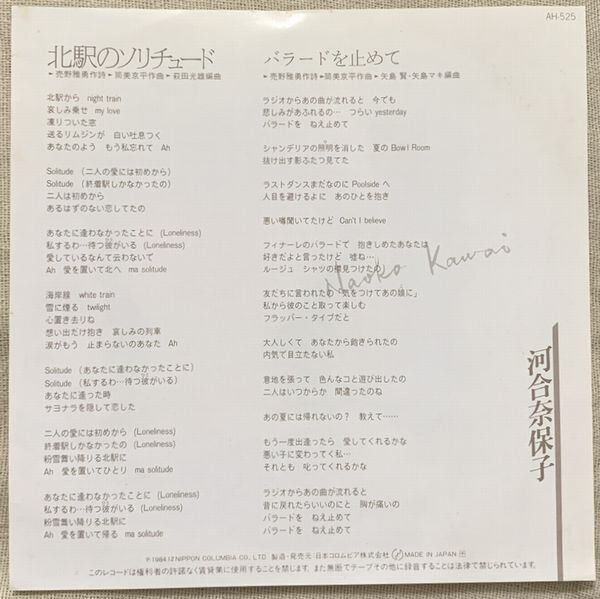 AH-525
北駅のソリチュード
►売野雅勇作詩►筒美京平作曲►萩田光雄編曲
北駅から night train
哀しみ乗せ my love
凍りついた窓
送るリムジンが 白い吐息つく
あなたのよう もう私忘れて Ah
Solitude (二人の愛には初めから)
Solitude (終着駅しかなかったの)
二人は初めから
あるはずのない恋してたの
あなたに逢わなかったことに (Loneliness)
私するわ…待つ彼がいる (Loneliness)
愛しているなんて云わないで
Ah 愛を置いて北へ ma solitude
海岸線 white train
雪に煙る twilight
心置き去りね
想い出だけ抱き 哀しみの列車
涙がもう 止まらないのあなた Ah
Solitude (あなたに逢わなかったことに)
Solitude (私するわ…待つ彼がいる)
あなたに逢った時
サヨナラを隠して恋した
二人の愛には初めから (Loneliness)
終着駅しかなかったの (Loneliness)
粉雪舞い降りる北駅に
Ah 愛を置いてひとり ma solitude
あなたに逢わなかったことに (Loneliness)
私するわ…待つ彼がいる (Loneliness)
粉雪舞い降りる北駅に
Ah 愛を置いて帰る ma solitude
バラードを止めて
►売野雅勇作詩►筒美京平作曲►矢島 賢・矢島マキ編曲
ラジオからあの曲が流れると 今でも
悲しみがあふれるの… つらい yesterday
バラードを ねえ止めて
シャンデリアの照明を消した 夏の Bowl Room
抜け出す影ふたつ見てた
ラストダンスまだなのに Poolside へ
人目を避けるよに あのひとを抱き
悪い噂聞いてたけど Can't I believe
フィナーレのバラードで 抱きしめたあなたは
好きだよと言ったけど 嘘ね…
ルージュ シャツの襟見つけたの
Naoko Kawai
友だちに言われたの "気をつけてあの娘に"
私から彼のこと取って楽しむ
フラッパー・タイプだと
大人しくて あなたから飽きられたの
内気で目立たない私
意地を張って 色んなコと遊び出したの
二人はいつからか 間違ったのね
あの夏には帰れないの？ 教えて……
もう一度出逢ったら 愛してくれるかな
悪い子に変わってく私…
それとも 叱ってくれるかな
ラジオからあの曲が流れると
昔に戻れたらいいのにと 胸が痛いの
バラードを ねえ止めて
バラードを ねえ止めて
河合奈保子
℗1984.12 NIPPON COLUMBIA CO., LTD. 製造・発売元:日本コロムビア株式会社 MADE IN JAPAN
このレコードは権利者の許諾なく賃貸業に使用することを禁じます。また無断でテープその他に録音することは法律で禁じられています。